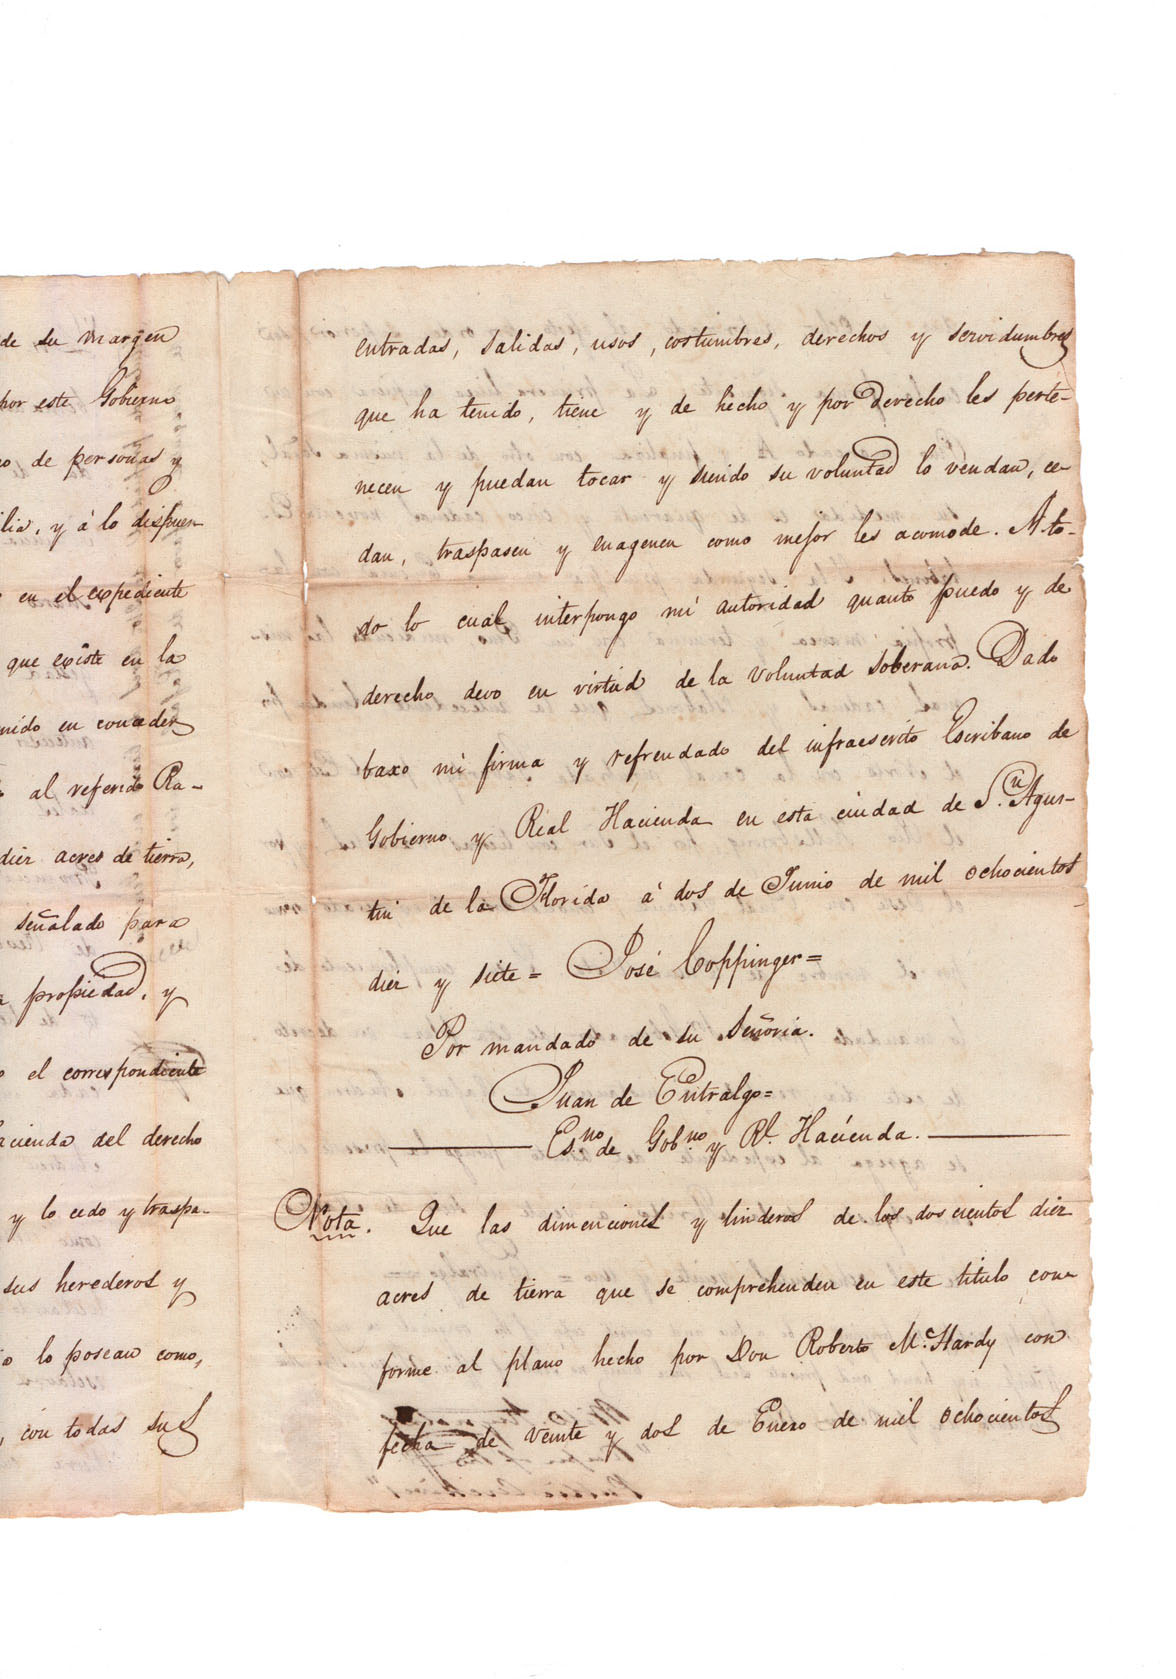 de su margen
por este Gobierno
de personas y
ilia, y á lo dispues-
en el expediente
que existe en la
nido en conceder
al referido Ra-
diez acres de tierra,
señalado para
propiedad, y
el correspondiente
acienda del derecho
y lo cedo y traspa-
sus herederos y
lo posean como,
con todas sus
entradas, salidas, usos, costumbres, derechos y servidumbres
que ha tenido, tiene y de hecho y por derecho les perte-
necen y puedan tocar y siendo su voluntad lo vendan, ce-
dan, traspasen y enagenen como mejor les acomode. A to-
do lo cual interpongo mi autoridad quanto puedo y de
derecho devo en virtud de la voluntad soberana. Dado
baxo mi firma y refrendado del infraescrito Escribano de
Gobierno y Real Hacienda en esta ciudad de S.n Agus-
tin de la Florida á dos de Junio de mil ochocientos
diez y siete = José Coppinger =
Por mandado de su Señoria.
Juan de Entralgo =
Es.no de Gob.no y Rl. Hacienda.
Nota. Que las dimenciones y linderos de los doscientos diez
acres de tierra que se comprehenden en este titulo con-
forme al plano hecho por Don Roberto Mc.Hardy con
fecha de veinte y dos de Enero de mil ochocientos